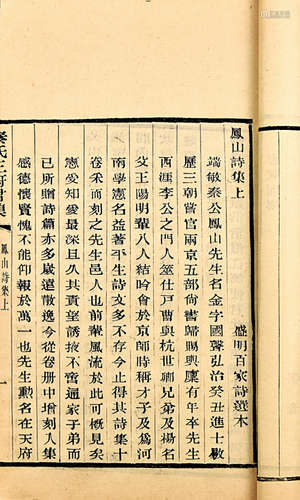 鳳山詩集上
盛明百家詩選本
端敏秦公鳳山先生名金字國聲弘治癸丑進士敭
歷三朝嘗官兩京五部尚書歸賜與廩有年李先生
西涯李公之門人筮仕戶曹與杭世卿兄弟及楊名
父王陽明輩八人結吟會於京師時稱才子及爲河
南學憲名益著平生詩文多不存今止得其詩集十
卷釆而刻之先生邑人也前輩風流於此可概見矣
憲愛知愛最深且久其責望誘掖不啻通家子弟而
已所贈詩篇亦多歲遠散逸今從卷冊中增刻入集
感德懷賢愧不能仰報於萬一也先生勳名在天府
秦氏三府君集
鳳山詩集上
一